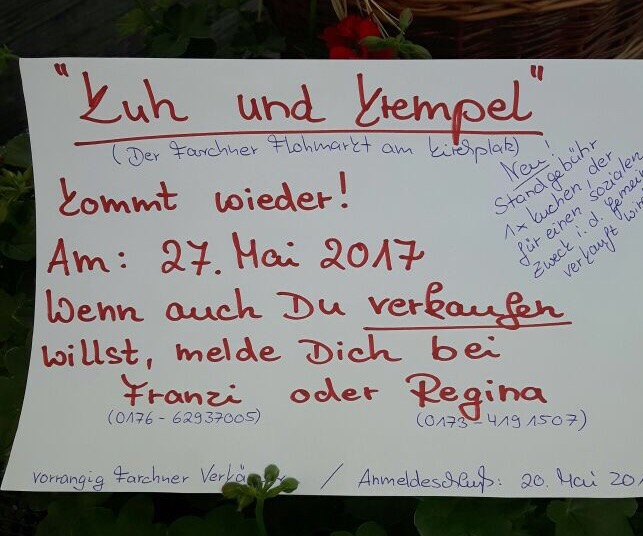 "Kuh und Krempel"
(Der Farchner Flohmarkt am Kirchplatz)
kommt wieder!
Am: 27. Mai 2017
Wenn auch Du verkaufen
willst, melde Dich bei
Franzi oder Regina
(0176-62937005) (0173-4191507)
Neu!
Standgebühr
1x Kuchen der
für einen sozialen
Zweck i.d. Gemein
verkauft wir
vorrangig Farchner Verkä / Anmeldeschluß: 20. Mai 201